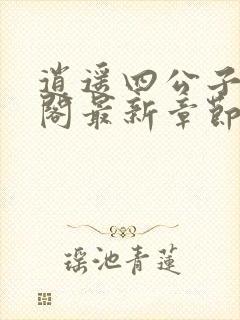 逍遥四公子
阁最新章節
瑶池青蓮